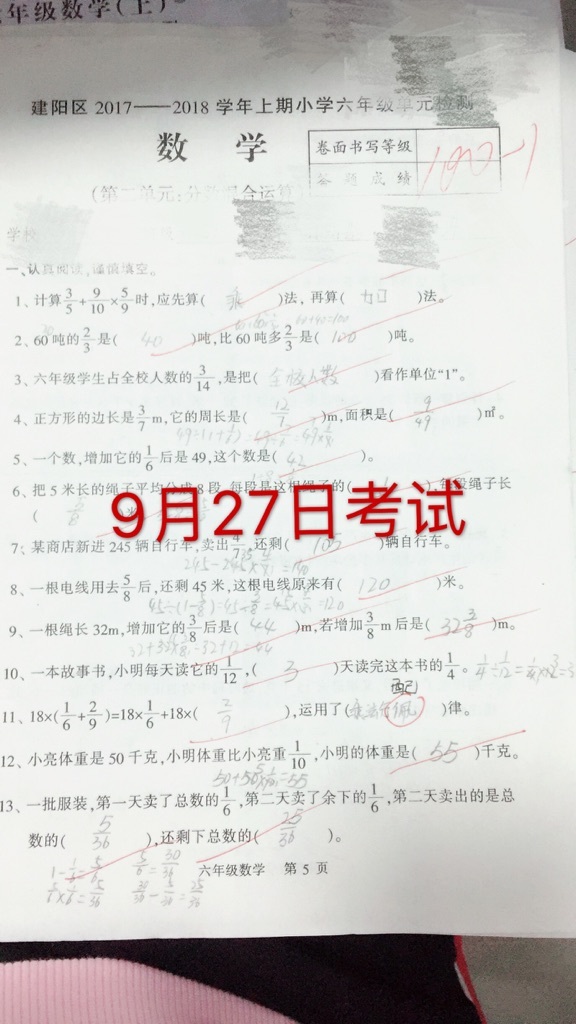 年级数学(上)
建阳区 2017——2018 学年上期小学六年级单元检测
数 学
卷面书写等级
答题成绩
100-1
(第二单元:分数混合运算)
学校
一、认真阅读,谨慎填空。
1、计算3/5+9/10×5/9时,应先算( 乘 )法, 再算( 加 )法。
2、60吨的2/3是( 40 )吨,比60吨多2/3是( 100 )吨。
3、六年级学生占全校人数的3/14,是把( 全校人数 )看作单位“1”。
4、正方形的边长是3/7m,它的周长是( 12/7 )m,面积是( 9/49 )㎡。
5、一个数,增加它的1/6后是49,这个数是( 42 )。
6、把5米长的绳子平均分成8段,每段是这根绳子的( ),每段绳子长
( 5/8 )米
9月27日考试
7、某商店新进245辆自行车,卖出4/7,还剩( 105 )辆自行车。
8、一根电线用去5/8后,还剩45米,这根电线原来有( 120 )米。
45÷(1-5/8)=45÷3/8=45×8/3=120
9、一根绳长32m,增加它的3/8后是( 44 )m,若增加3/8m后是( 32 3/8 )m。
32+32×3/8=32+12=44
10、一本故事书,小明每天读它的1/12,( 3 )天读完这本书的1/4。
配
11、18×(1/6+2/9)=18×1/6+18×( 2/9 ),运用了(乘法分佩)律。
12、小亮体重是50千克,小明体重比小亮重1/10,小明的体重是( 55 )千克。
13、一批服装,第一天卖了总数的1/6,第二天卖了余下的1/6,第二天卖出的是总
数的( 5/36 ),还剩下总数的( 25/36 )。
1-1/6=5/6 5/6=30/36
5/6×1/6=5/36 30/36-5/36=25/36
六年级数学 第5页